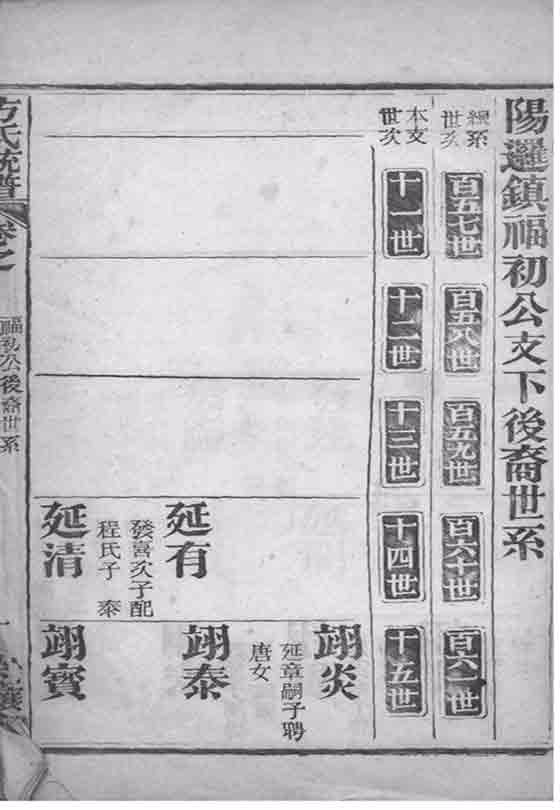 陽邏鎮福初公支下後裔世系
總系
世次
百五七世
百五八世
百五九世
百六十世
百六一世
本支
世次
十一世
十二世
十三世
十四世
十五世
延有
發喜次子配
程氏子 泰
延清
翊炎
延章嗣子聘
唐女
翊泰
翊賓
方氏統譜
卷之
福初公後裔世系